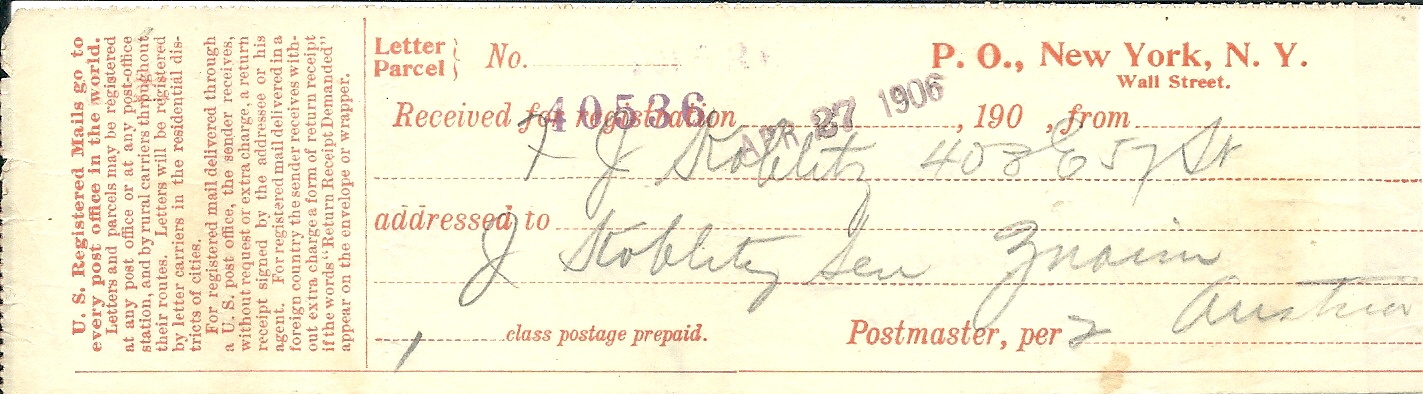 U. S. Registered Mails go to
every post office in the world.
Letters and parcels may be registered
at any post office or at any post-office
station, and by rural carriers throughout
their routes. Letters will be registered
by letter carriers in the residential dis-
tricts of cities.
For registered mail delivered through
a U. S. post office, the sender receives,
without request or extra charge, a return
receipt signed by the addressee or his
agent. For registered mail delivered in a
foreign country the sender receives with-
out extra charge a form of return receipt
if the words "Return Receipt Demanded"
appear on the envelope or wrapper.
Letter
Parcel } No.
P. O., New York, N. Y.
Wall Street.
40536
APR 27 1906
Received for registration , 190 , from
J Koblitz 403 E 57 St
addressed to
J Koblitz Sen Znaim
Austria
1 class postage prepaid. Postmaster, per